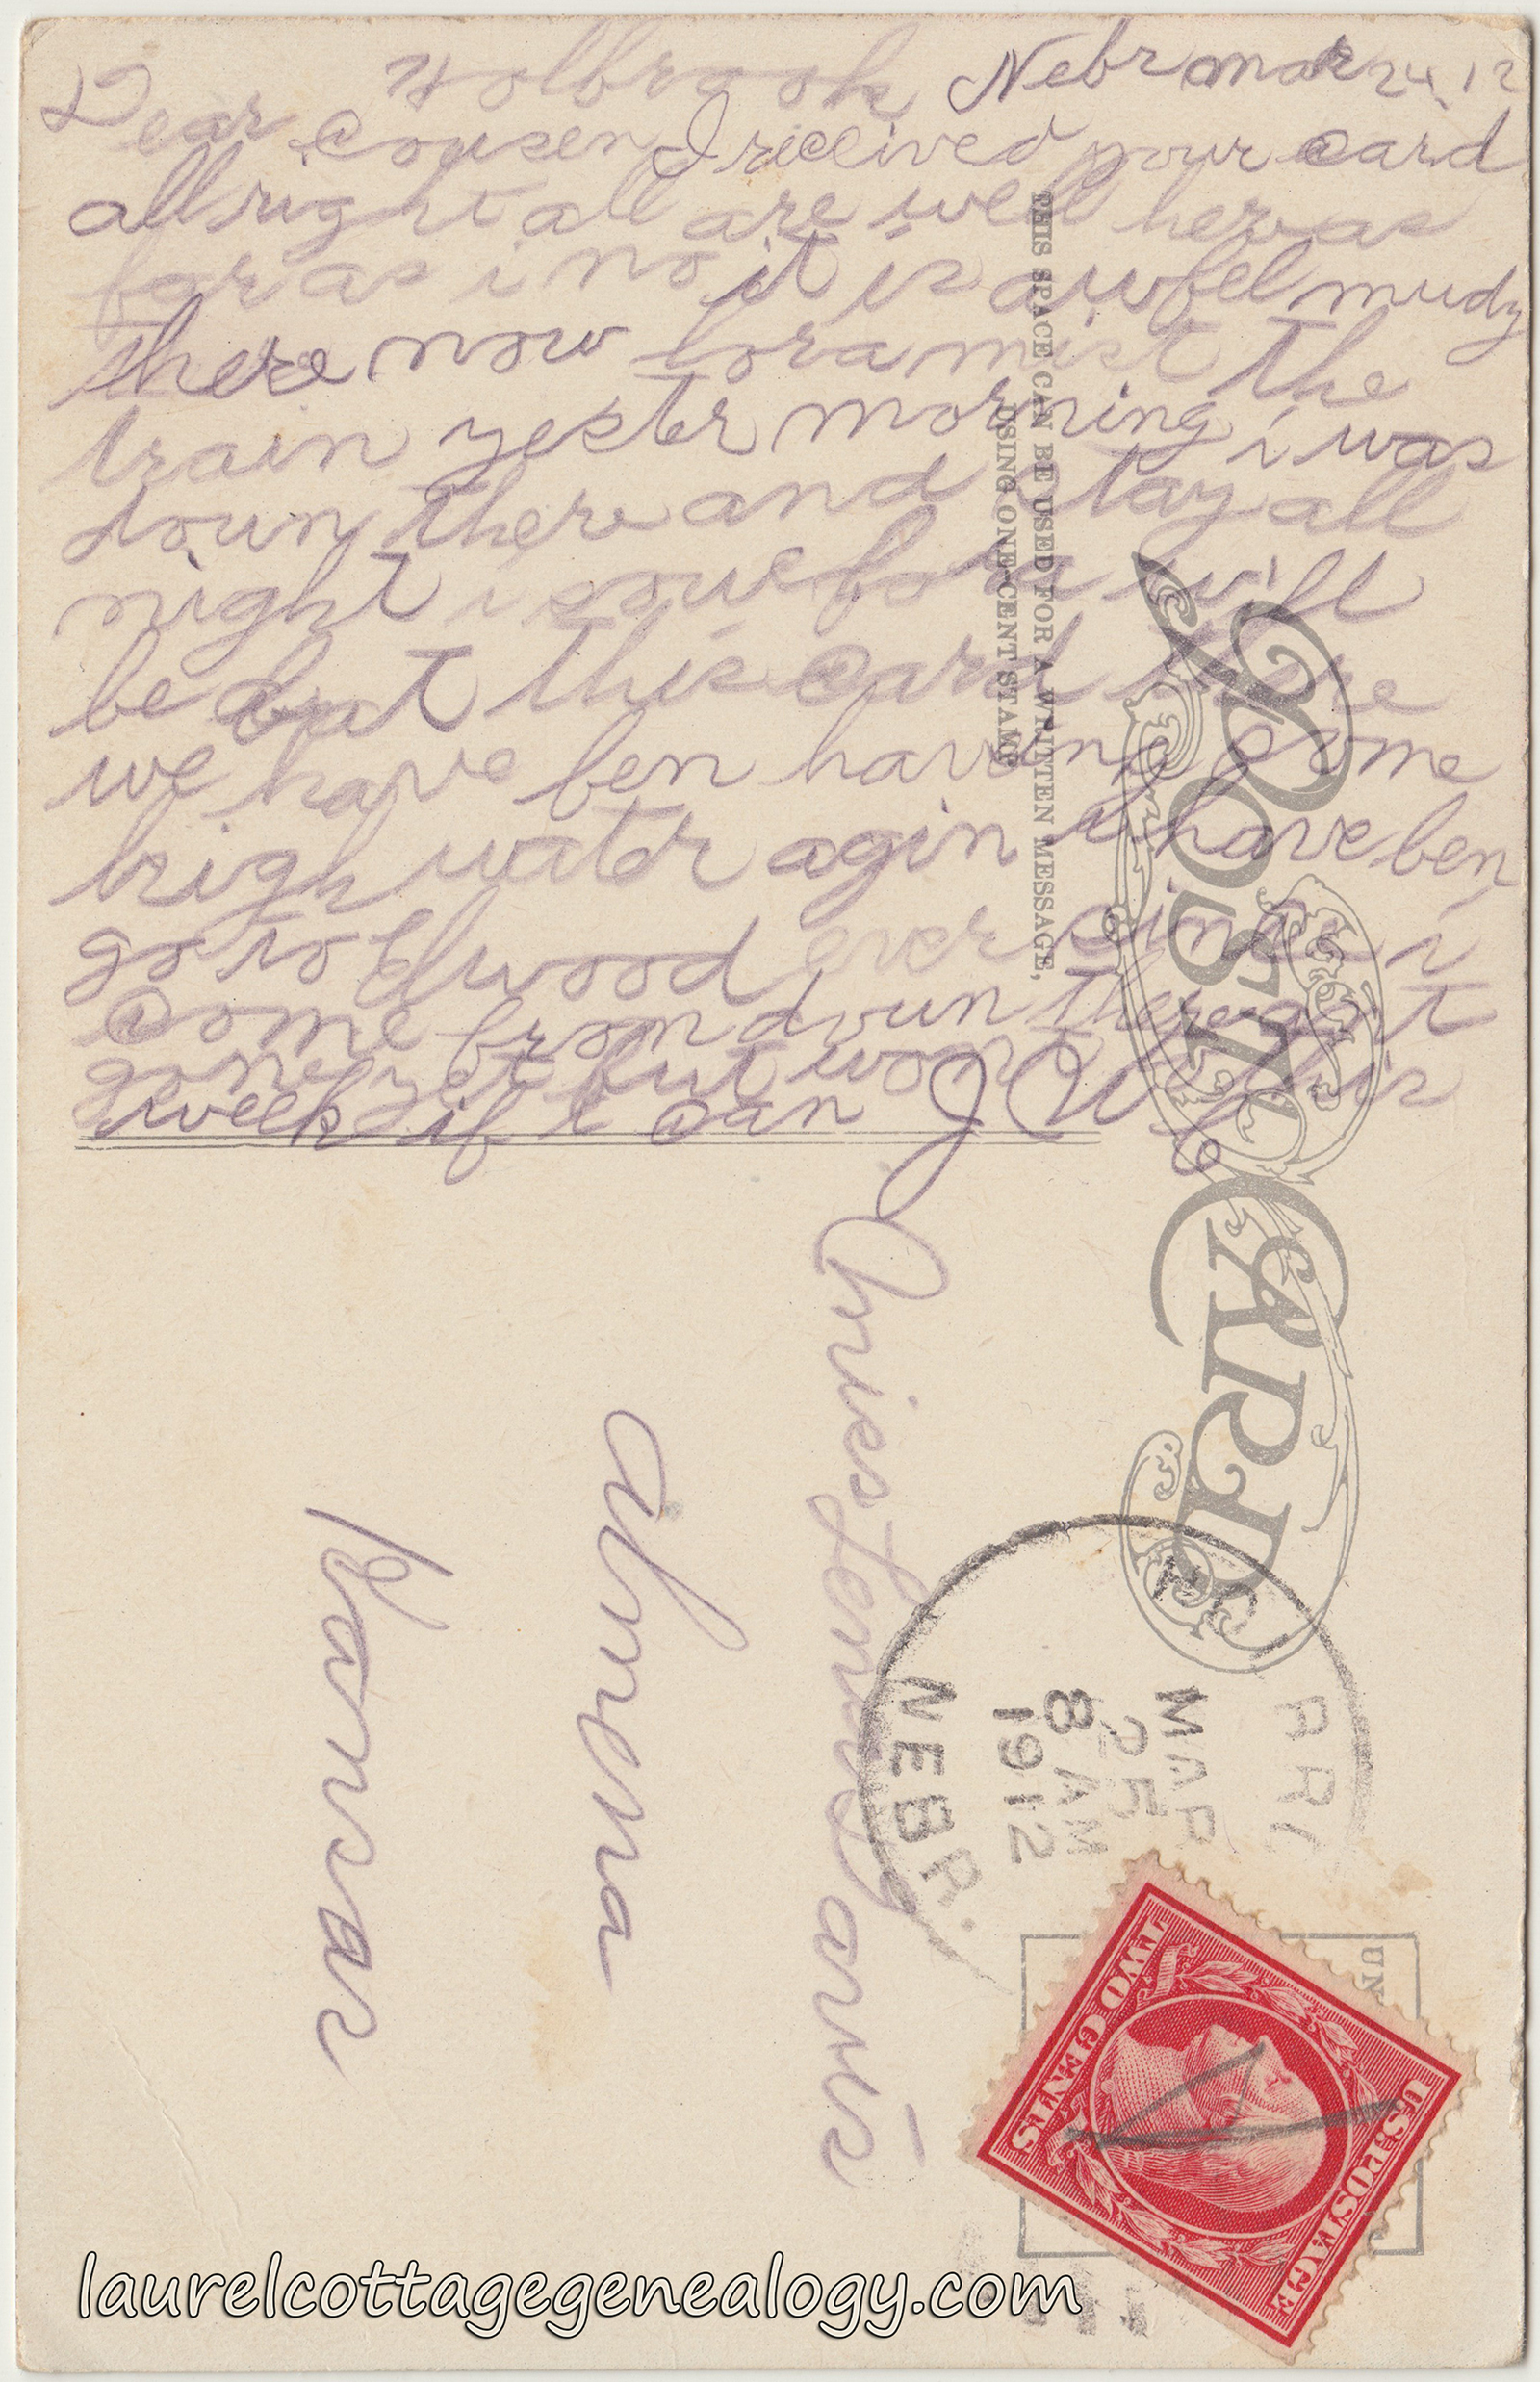 Holbrook Nebr mar 24, 12
Dear Cousen I received your card
allright all are well her as
far as i no it is awfel mudy
there now Cora mist the
train yester morning i was
down there and stay all
night i
be about this card there
we have ben having some
high water agin i have ben
go to Elwood ever since i
come from down there aint
gone yet but wont this
week if i can J W L
THIS SPACE CAN BE USED FOR A WRITTEN MESSAGE,
USING ONE-CENT STAMP
POST CARD
Miss Lenny aris
almena
Kansas
MAR
25
8 AM
1912
NEBR.
UN
U.S. POSTAGE
TWO CENTS
laurelcottagegenealogy.com